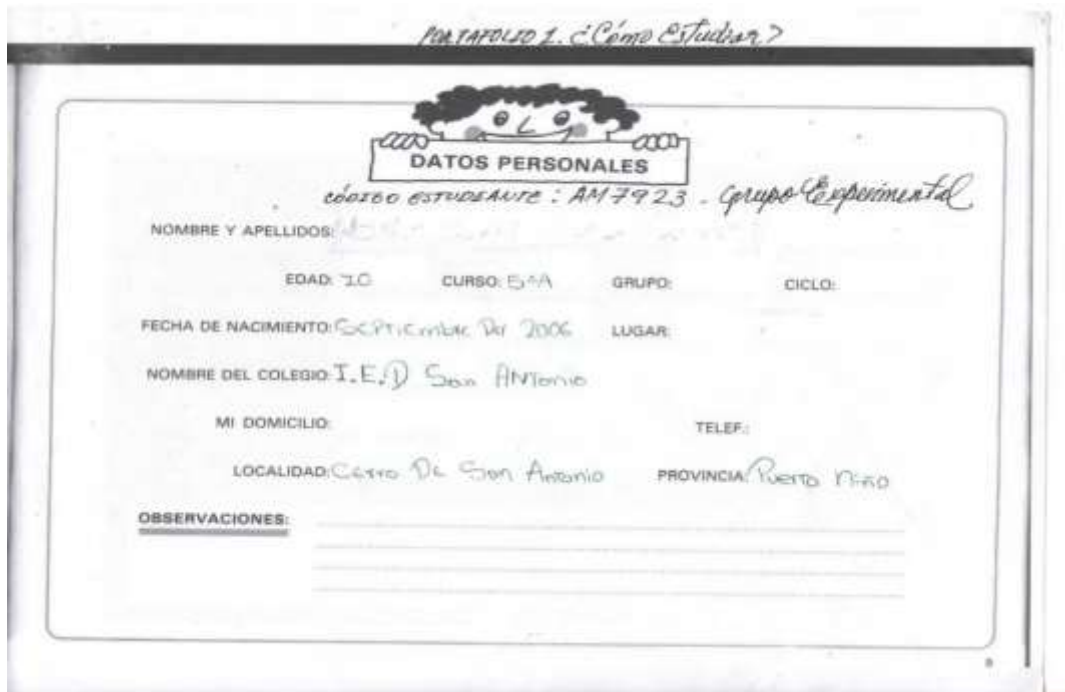 PORTAFOLIO 1. ¿Cómo Estudiar?
DATOS PERSONALES
CÓDIGO ESTUDIANTE: AM7923 - Grupo Experimental
NOMBRE Y APELLIDOS:
EDAD: 10 CURSO: 5°A GRUPO: CICLO:
FECHA DE NACIMIENTO: Septiembre Del 2006 LUGAR:
NOMBRE DEL COLEGIO: I.E.D San Antonio
MI DOMICILIO: TELEF.:
LOCALIDAD: Cerro De San Antonio PROVINCIA: Puerto Niño
OBSERVACIONES:
8